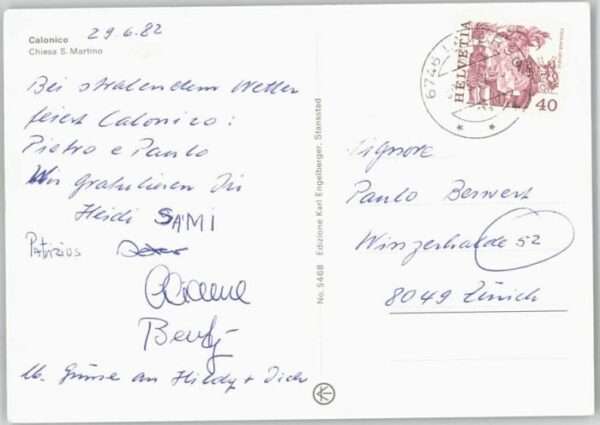 Calonico 29.6.82
Chiesa S. Martino
Bei stralendem Wetter
feiert Calonico:
Pietro e Paulo
Wir gratulieren Dir
Heidi SAMI
Patrizios
lb. Grüsse an Hildy + Dich
No. 5468 Edizione Karl Engelberger, Stansstad
HELVETIA
40
6746
Signore
Paulo Berwert
Winzerhalde 52
8049 Zürich